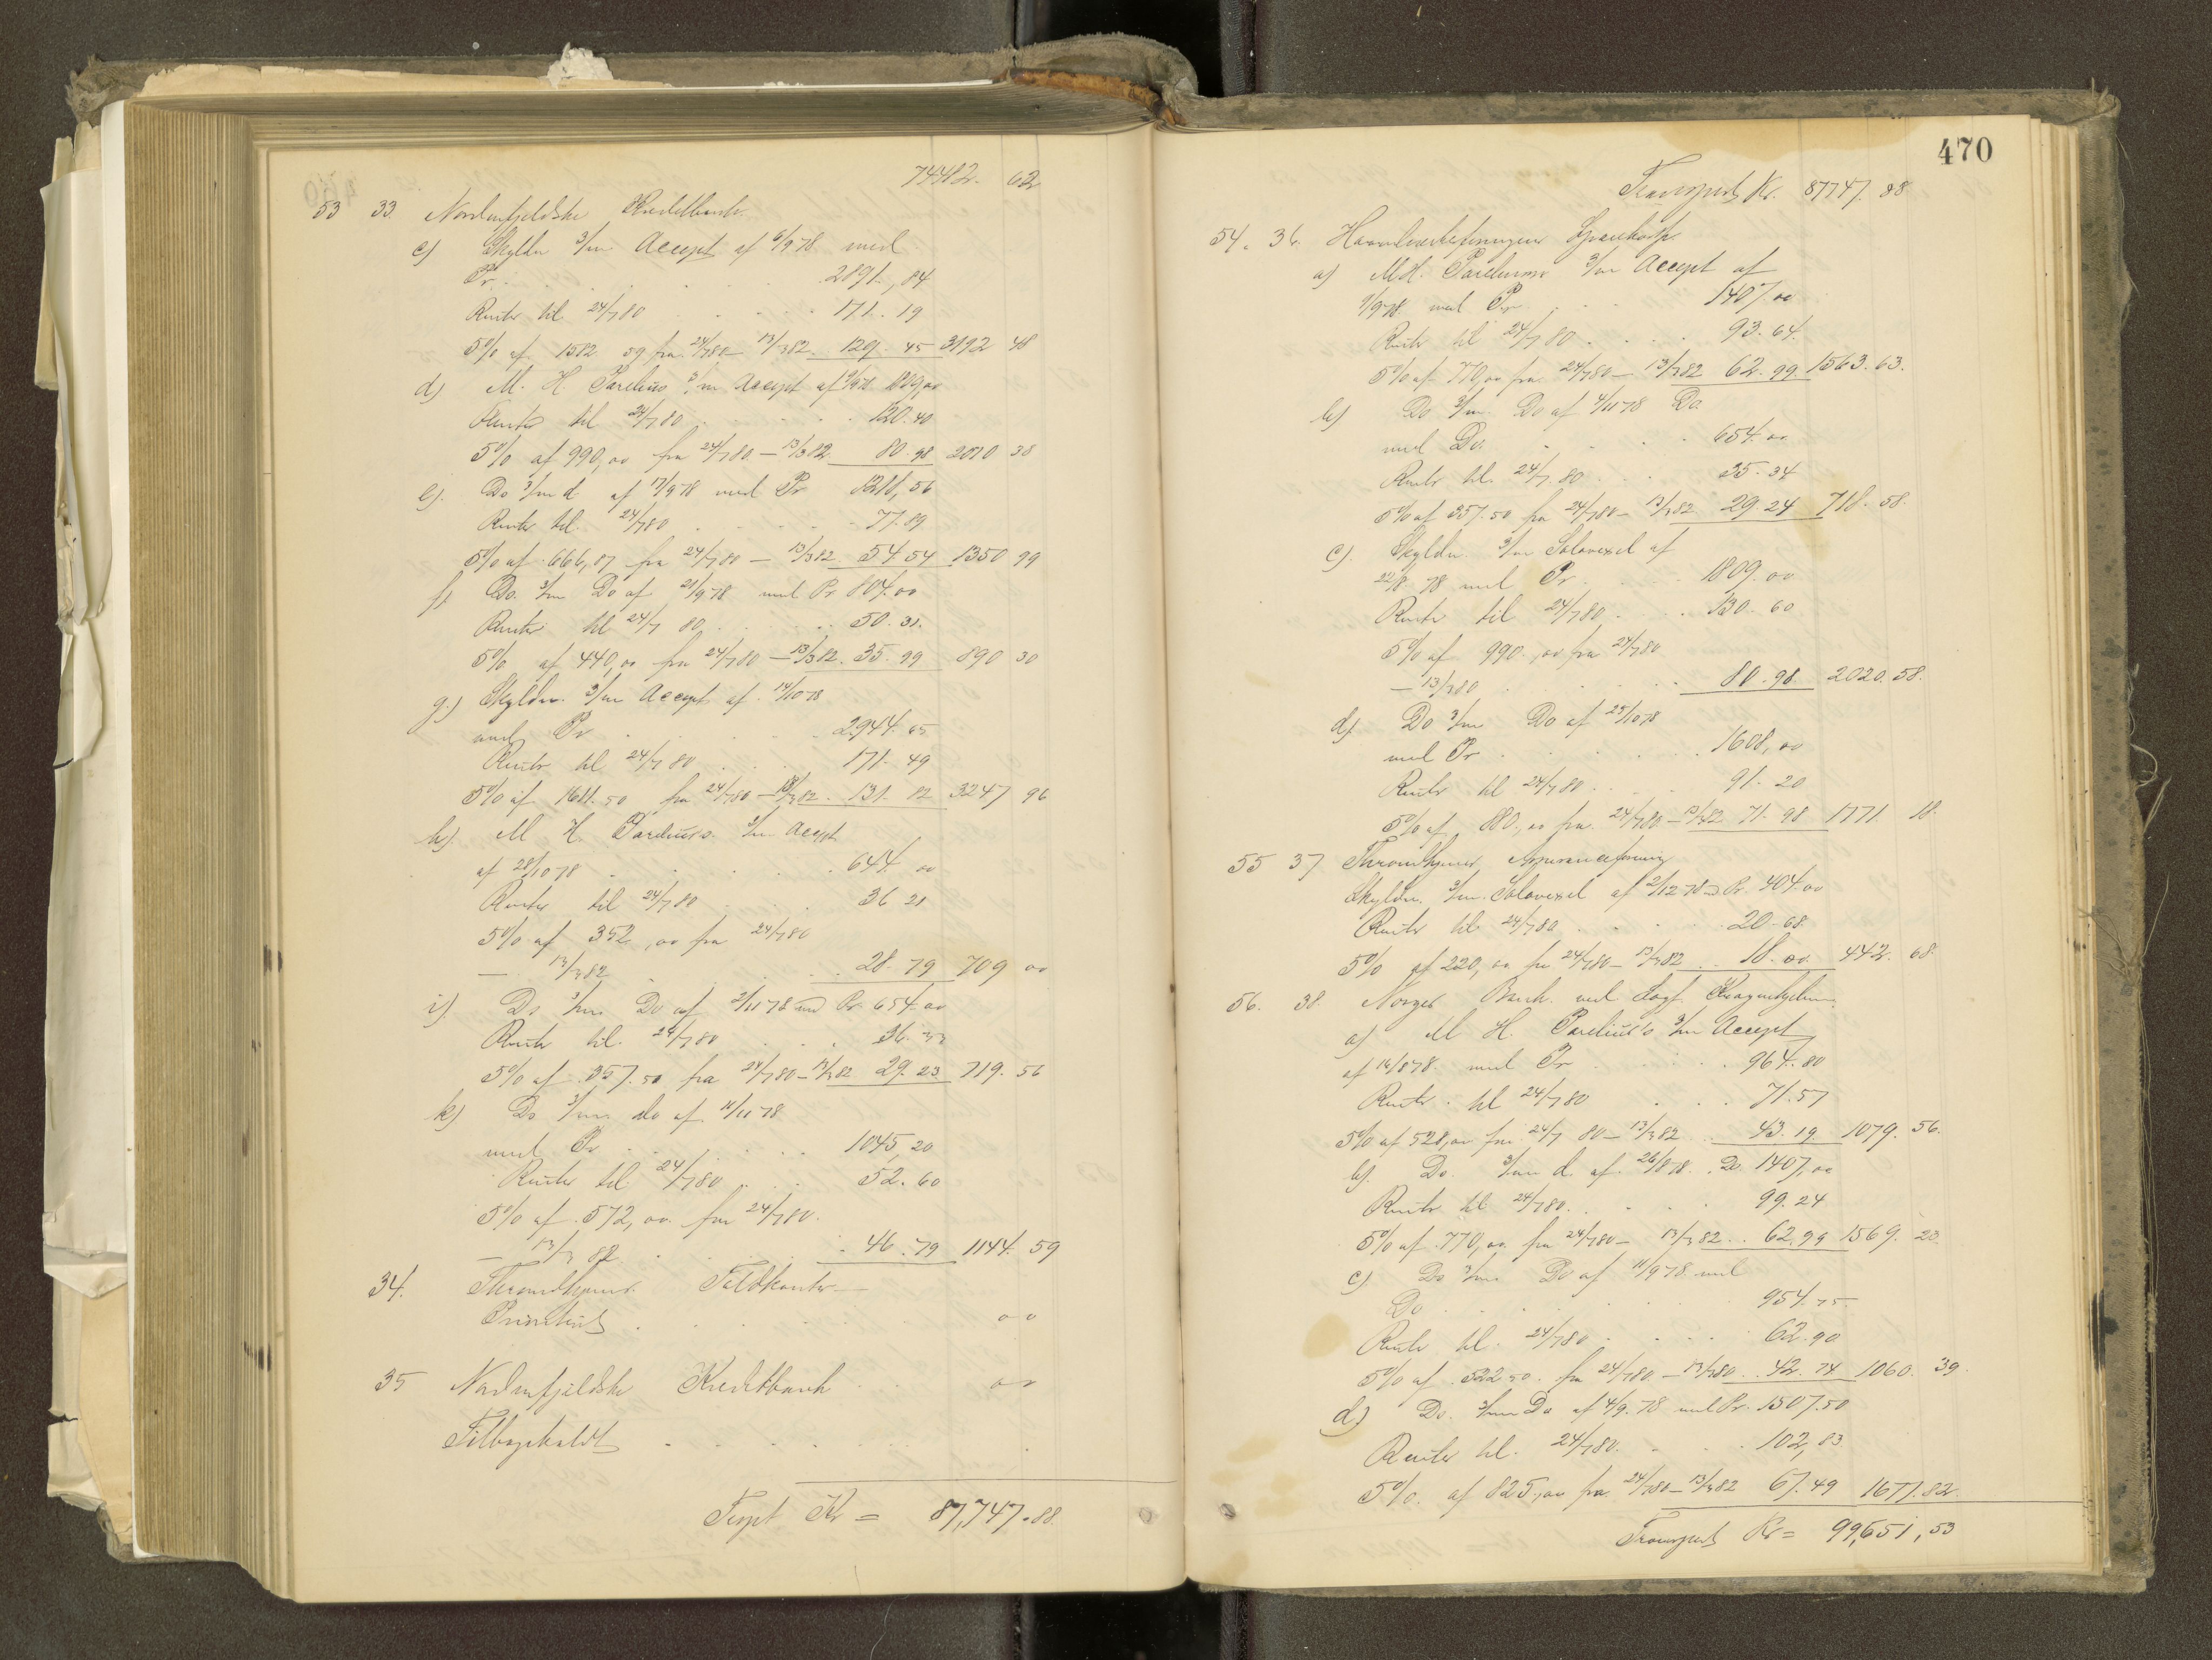 74482. 62
53 33. Nordenfjeldske Kreditbank.
c) Skyldn 3/m Accept af 6/9 78 med
Pr. . . . 2891,84
Renter til 24/7 80 . . . 171. 19
5% af 1582 59 fra 24/7 80 – 13/3 82. 129. 45 3192 48
d) M. H. Parelius 3/m Accept af 9/9 78 1809,00
Renter til 24/7 80 . . . 120. 40
5% af 990,00 fra 24/7 80 – 13/3 82 80. 98 2010 38
e). Do 3/m d. af 17/9 78 med Pr 1218,56
Renter til 24/7 80 . . . 77. 89
5% af 666,87 fra 24/7 80 – 13/3 82 54 54 1350 99
f. Do. 3/m Do af 21/9 78 med Pr 804.00
Renter til 24/7 80 . . . 50. 31.
5% af 440,00 fra 24/7 80 – 13/3 82. 35. 99 890 30
g.) Skyldn. 3/m Accept af 14/10 78
med Pr . . . 2944. 65
Renter til 24/7 80 . . . 171. 49
5% af 1611. 50 fra 24/7 80 – 13/3 82. 131. 82 3247 96
h). M H. Parelius's 3/m Accept
af 28/10 78 . . . 644. 00
Renter til 24/7 80 . . . 36 21
5% af 352,00 fra 24/7 80
– 13/3 82 . . . 28. 79 709 00
i) Do 3/m Do af 2/11 78 md Pr. 654.00
Renter til. 24/7 80 . . . 36. 33
5% af 357. 50 fra 24/7 80 – 13/3 82 29. 23 719. 56
k) Do 3/m do af 11/11 78
med Pr . . . 1045,20
Renter til 24/7 80 . . . 52. 60
5% af 572,00. fra 24/7 80.
– 13/3 82 . . . 46. 79 1144. 59
34. Throndhjems Toldkontor
Prioritet . . . 00
35 Nordenfjeldske Kreditbank . . 00
Tilbagekaldt . . .
Trspt Kr = 87,747. 88.
470
Transport Kr. 87747. 88
54. 36. Haandværkerforeningens Sparekasse
a) M H. Parelius's 3/m Accept af
9/9 78 med Pr . . . 1407.00
Renter til 24/7 80 . . . 93. 64.
5% af 770,00 fra 24/7 80 – 13/3 82 62. 99. 1563. 63.
b) Do 3/m Do af 4/11 78 Do
med Do. . . . 654. 00
Renter til. 24/7 80 . . . 35. 34
5% af 357. 50 fra 24/7 80 – 13/3 82 29. 24 718. 58.
c). Skyldn. 3/m Solavexel af
22/8 78 med Pr . . . 1809. 00
Renter til 24/7 80 . . . 130. 60
5% af 990.,00 fra 24/7 80
– 13/3 80 . . . 80. 98 2020. 58.
d). Do 3/m Do af 25/10 78
med Pr . . . 1608,00
Renter til 24/7 80 . . . 91. 20
5% af 880.,00 fra. 24/7 80 – 13/3 82 71. 98 1771. 18.
55 37 Throndhjems
Skyldn. 3/m Solavexel af 2/12 78 Pr. 404.00
Renter til 24/7 80 . . . 20. 68.
5% af 220,00 fra 24/7 80 – 13/3 82 . 18. 00. 442. 68.
56. 38. Norges Bank ved Sagf.
a) M H. Parelius's 3/m Accept
af 14/8 78 med Pr . . . 964. 80
Renter til 24/7 80 . . . 71. 57
5% af 528,00 fra 24/7 80 – 13/3 82 43. 19. 1079. 56.
b). Do. 3/m d. af 26/8 78. Do 1407,00
Renter til 24/7 80 . . . 99. 24
5% af 770,00 fra 24/7 80 – 13/3 82 . . 62,99 1569. 23.
c). Do 3/m Do af 11/9 78 med
Do . . . 954. 75
Renter til. 24/7 80 . . . 62. 90
5% af 522 50. fra 24/7 80 – 13/3 80 . 42. 74 1060. 39.
d) Do. 3/m Do af 4/9. 78 med Pr. 1507.50
Renter til. 24/7 80. . . . 102,83
5%. af 825,00 fra 24/7 80 – 13/3 82 67. 49 1677. 82.
Transport Kr = 99,651,53